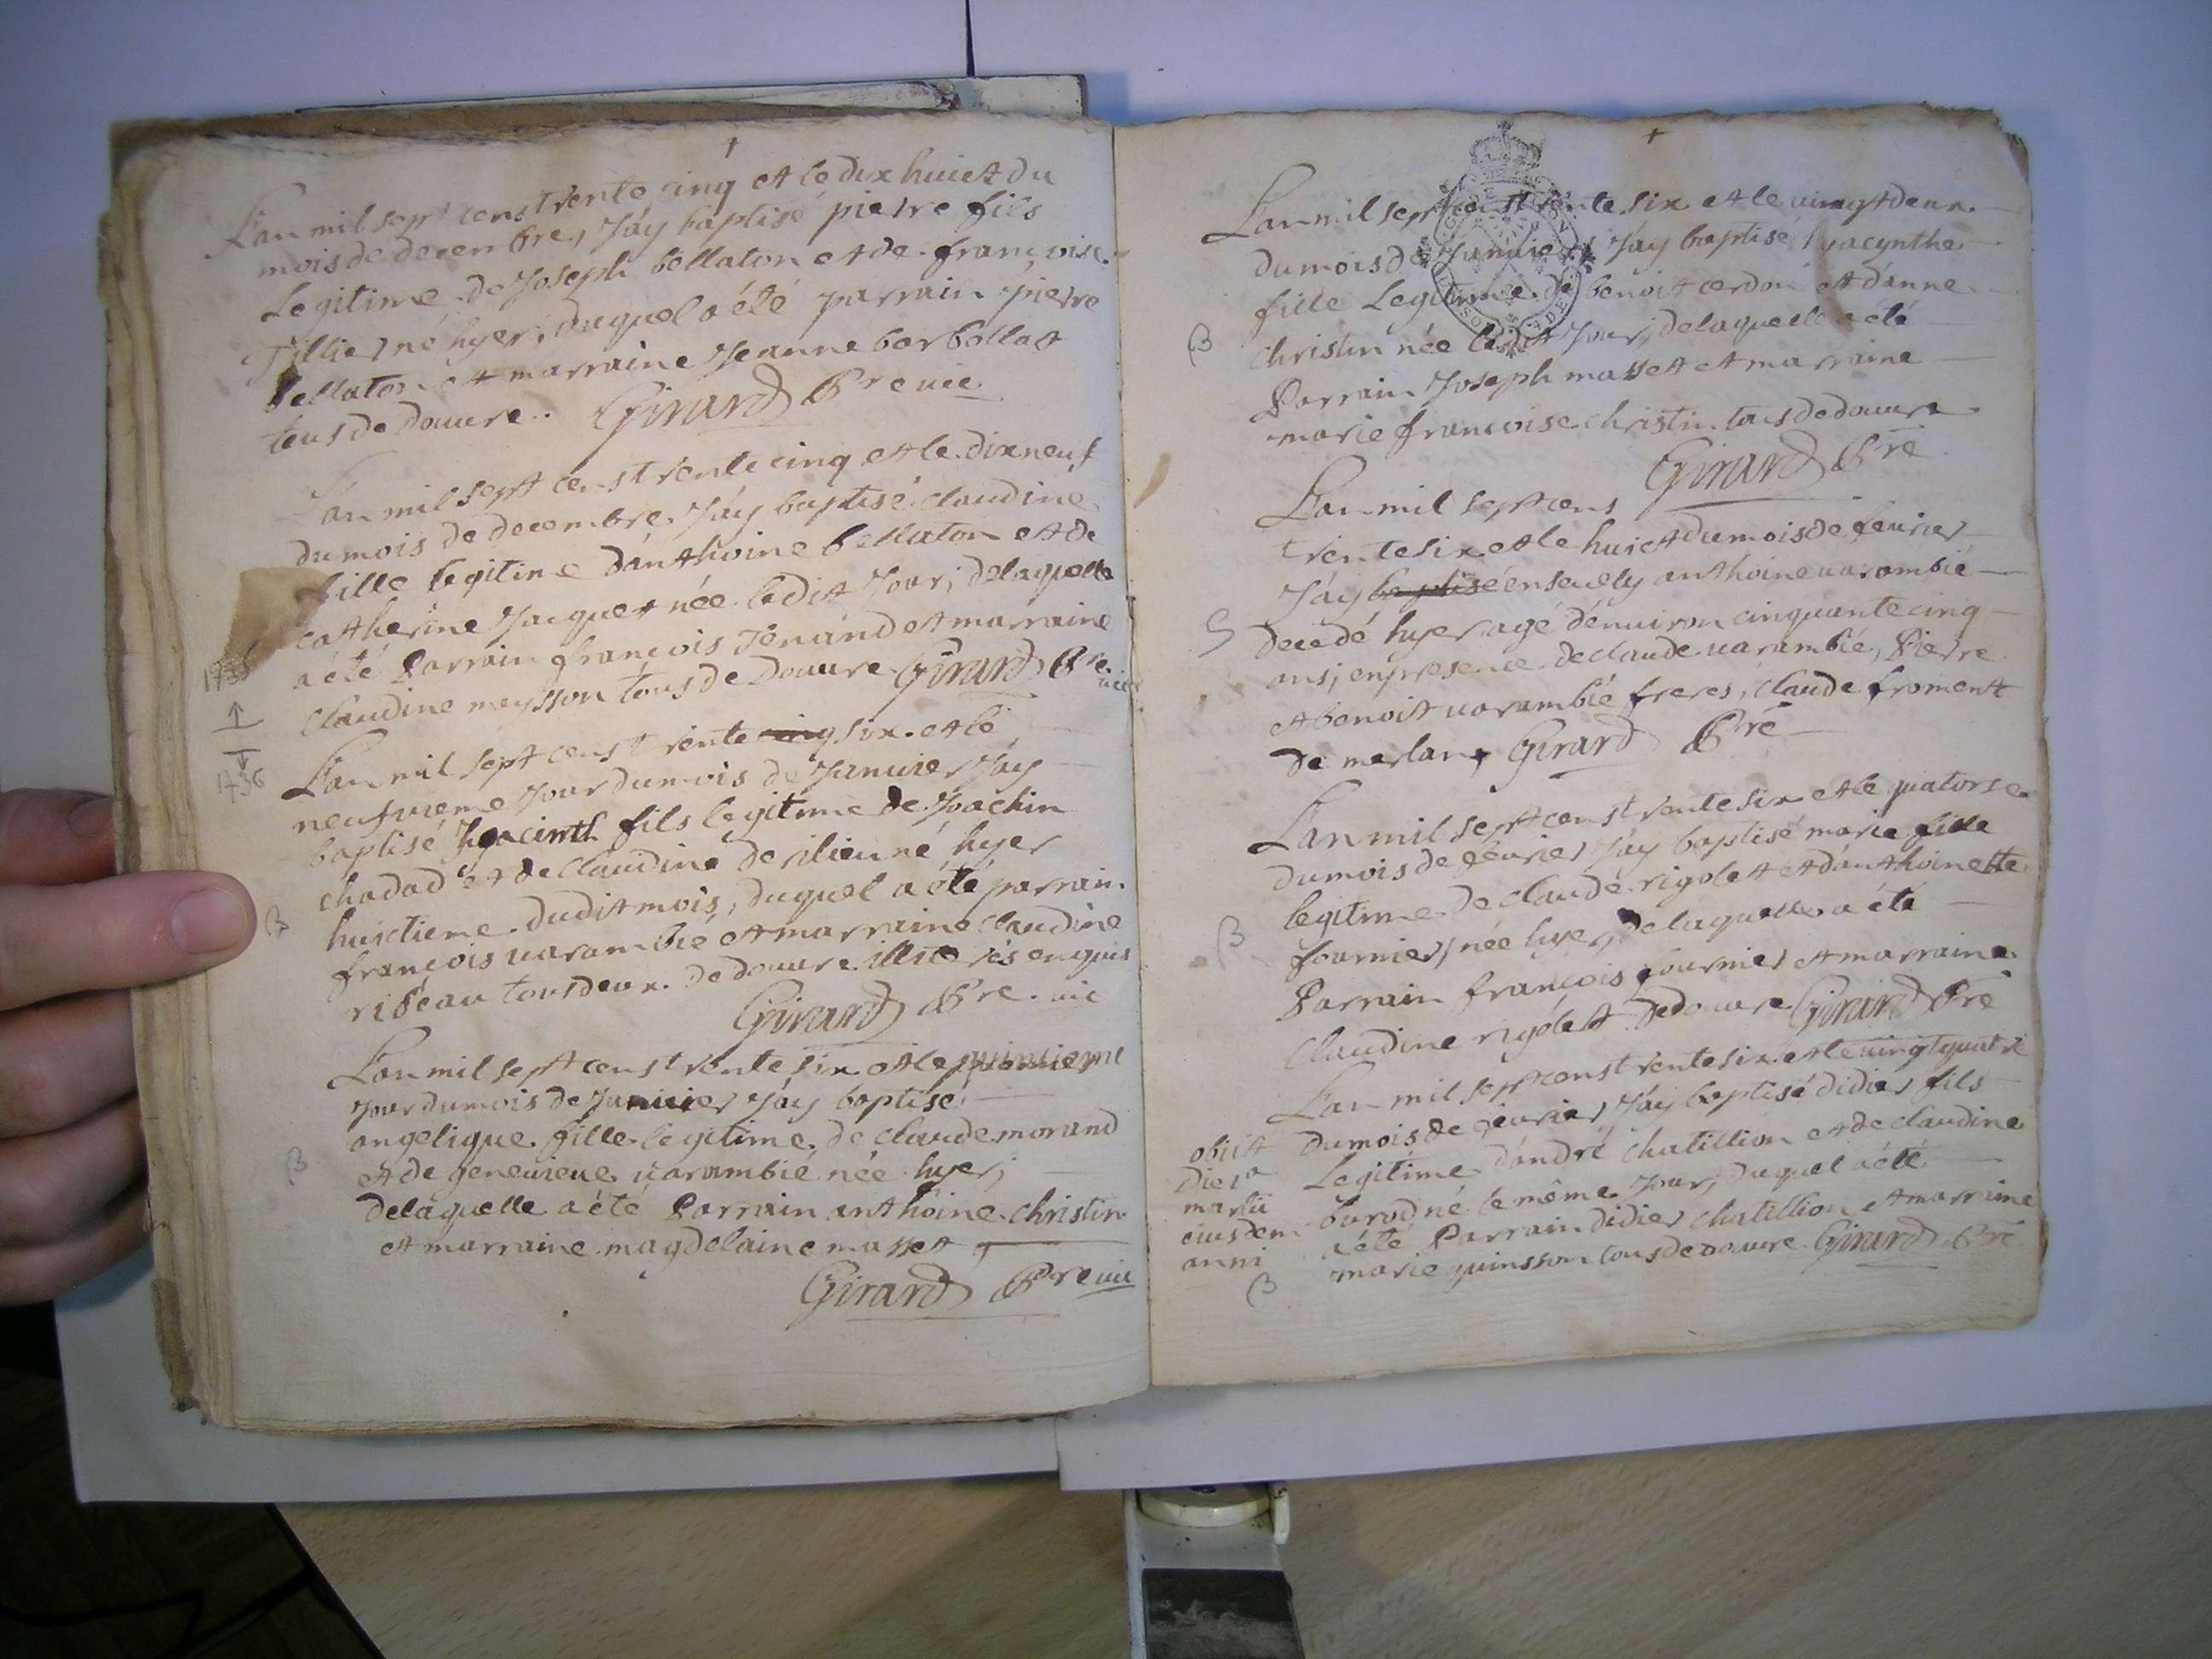 L'an mil sept cens trente cinq et le dix huict du
mois de decembre, J'áy baptisé pietre fils
Legitime de Joseph bellaton et de françoise
Tillier né hyer; duquel a été parrain pietre
bellaton et marraine Jeanne barbollat
tous de Douure. Girard Pre vic
L'an mil sept cens trente cinq et le dix neuf
du mois de decembre J'áy baptisé claudine
fille legitime d'anthoine bellaton et de
catherine Jacquet née ledit Jour; delaquelle
a été Parrain françois Tenánd et marraine
Claudine meysson tous de Douure Girard Pre vic
1735
1736
L'an mil sept cens trente cinq six et le
neufvieme Jour du mois de Januier J'áy
baptisé hyacinth fils legitime de Joachin
chadod et de Claudine derilieu né hyer
huictieme dudit mois, duquel a été parrain
françois uarambié et marraine claudine
rideau tous deux de douure illiterés enquis
Girard Pre vic
L'an mil sept cens trente six et le
Jour du mois de Januier J'áy baptisé
angelique fille legitime de claude morand
et de geneuieue uarambié née hyer;
delaquelle a été Parrain anthoine christin
et marraine magdelaine masset
Girard Pre vic
L'an mil sept cens trente six et le uingt deux
du mois de Januier J'áy baptisé hyacynthe
fille Legitime de benoit cerdon et d'anne
christin née ledit Jour; delaquelle a été
B
Parrain Joseph masset et marraine
marie françoise christin tous de douure
Girard Pre
L'an mil sept cens
trente six et le huict du mois de feurier
J'áy baptisé enseuely anthoine uarambié
S decedé hyer agé d'enuiron cinquante cinq
ans; en presence de claude uarambié, Pietre
et benoit uarambié freres, claude froment
de merlan Girard Pré
L'an mil sept cens trente six et le quatorse
du mois de feurier J'áy baptisé marie fille
legitime de claude rigolet et d'anthoinette
B
fournier, née hyer, delaquelle a été
Parrain françois fournier et marraine
Claudine rigolet de douure Girard Pre
L'an mil sept cens trente six et le uingt quatre
du mois de feurier J'áy baptisé didier fils
Legitime d'andré chatillion et de claudine
burod né le même Jour; duquel a été
a été Parrain didier chatillion et marraine
marie quinsson tous de douure Girard Pre
obiit
die 1a
martii
eiusdem
anni
B